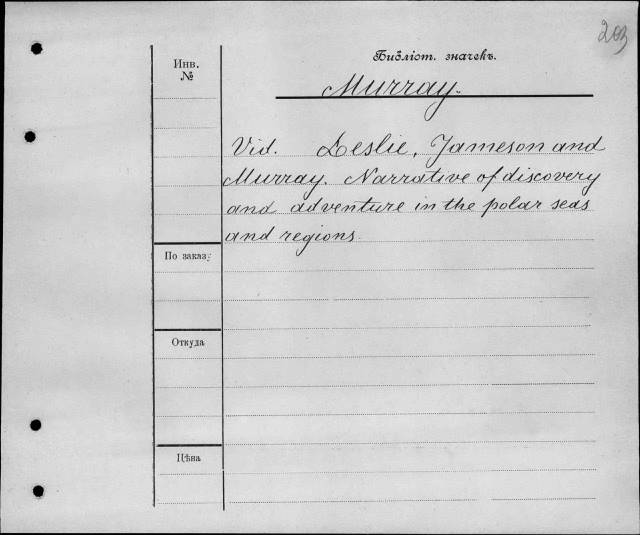 203
Библіот. значекъ.
Инв.
№
Murray.
Vid. Leslie, Jameson and
Murray. Narrative of discovery
and adventure in the polar seas
and regions.
По заказу
Откуда
Цѣна